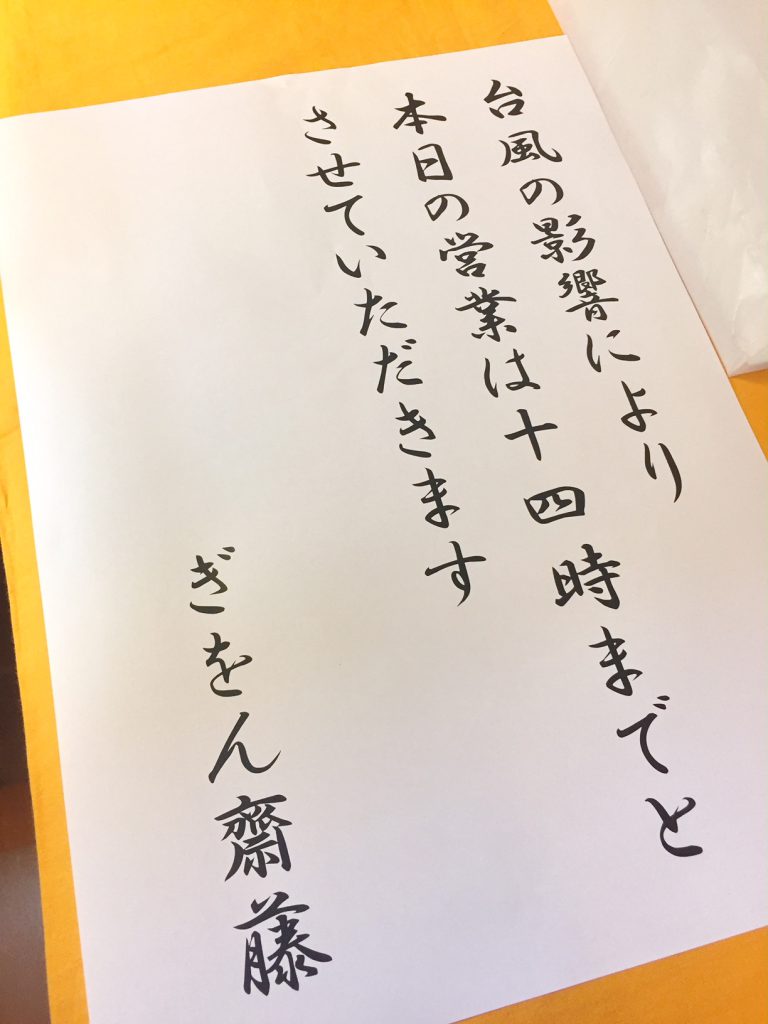 台風の影響により
本日の営業は十四時までと
させていただきます
ぎをん齋藤